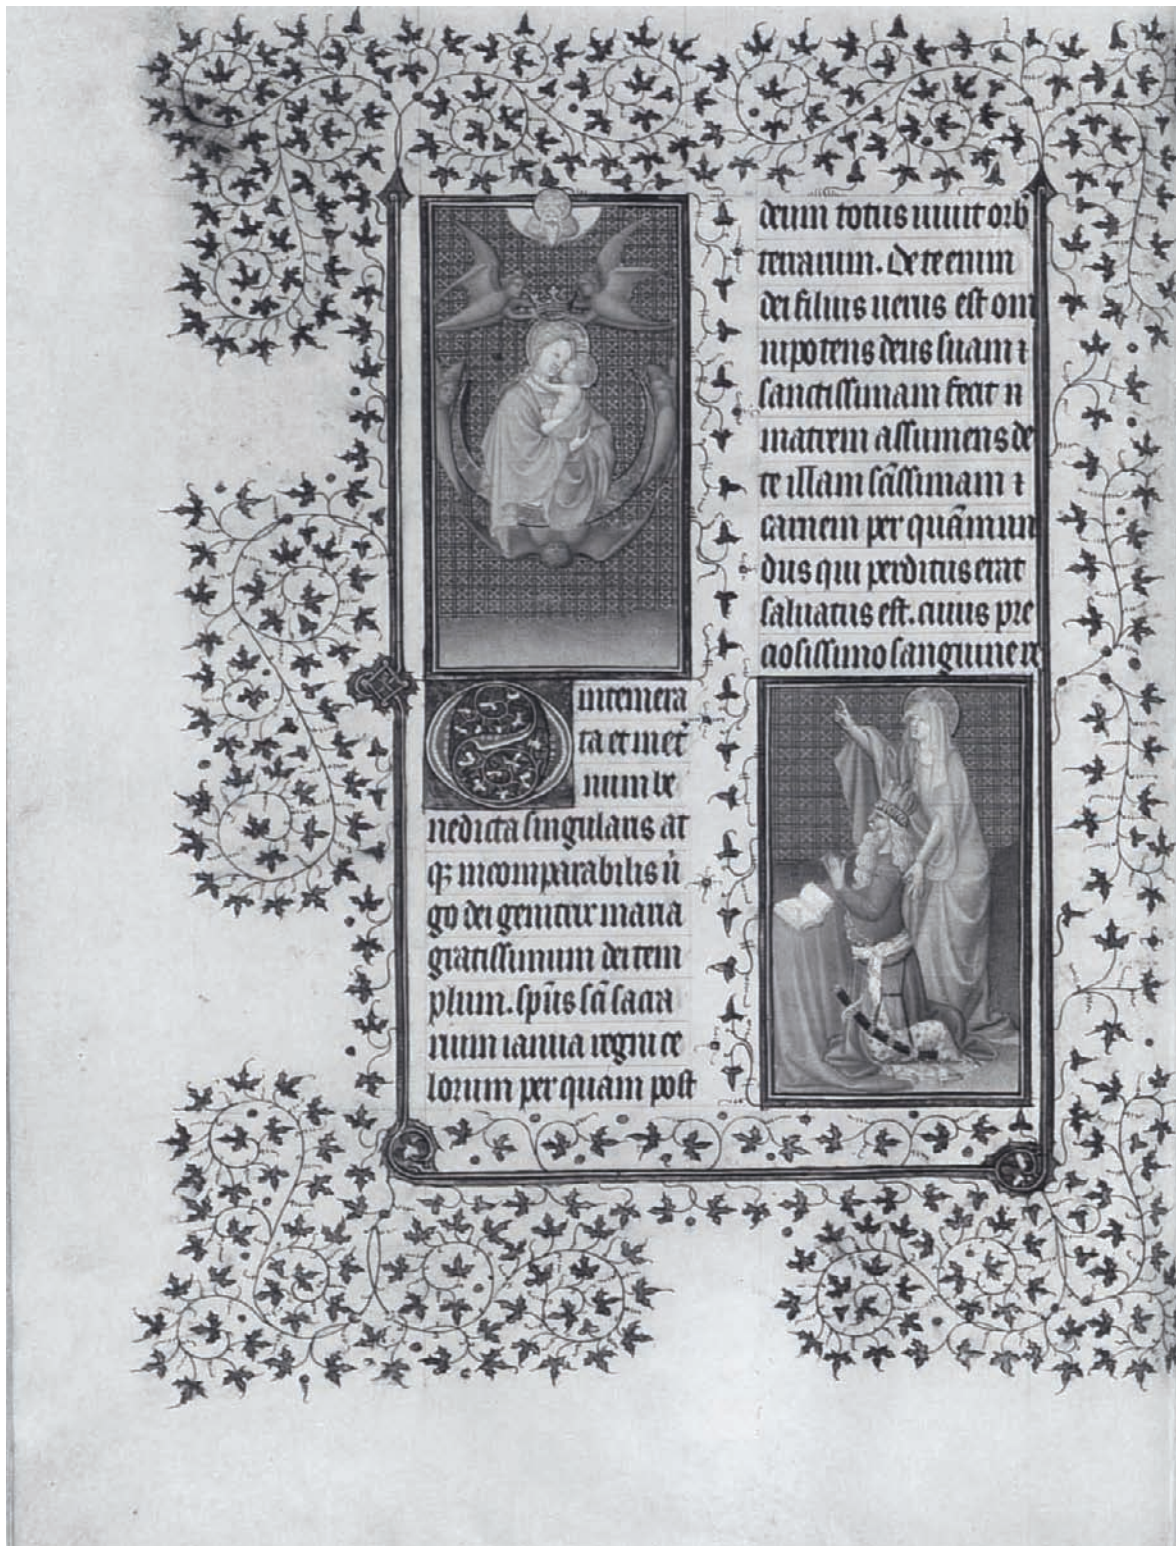 O intemera
ta et in et̾
num be
nedicta singularis at
qꝫ incomparabilis ũ
go dei genitrix maria
gratissimum dei tem
plum. sp̄us sc̄i sacra
rium ianua regni ce
lorum per quam post
deum totus uiuit orb̾
terrarum. De te enim
dei filius uerus est om
nipotens deus suam ⁊
sanctissimam fecit
matrem assumens de
te illam sc̄issimam ⁊
carnem per quā mun
dus qui perditus erat
saluatus est. cuius pre
ciosissimo sanguine